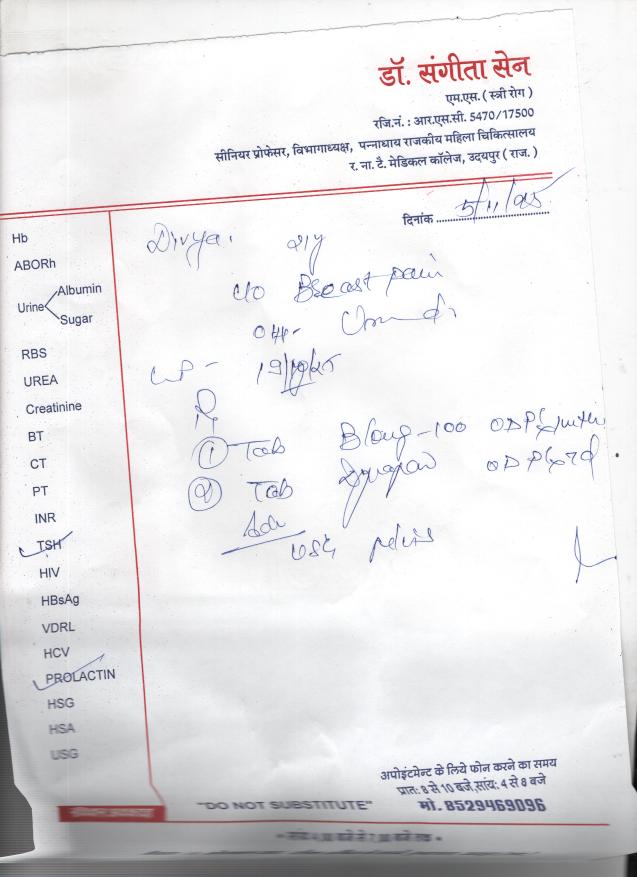 डॉ. संगीता सेन
एम.एस. ( स्त्री रोग )
रजि.नं. : आर.एस.सी. 5470/17500
सीनियर प्रोफेसर, विभागाध्यक्ष, पन्नाधाय राजकीय महिला चिकित्सालय
र. ना. टै. मेडिकल कॉलेज, उदयपुर ( राज. )
दिनांक 5/11/25
Divya.
c/o Breast pain
LMP - 19/10/25
① Tab 100 OD
② Tab OD
Adv
USG pelvis
Hb
ABORh
Urine Albumin
Sugar
RBS
UREA
Creatinine
BT
CT
PT
INR
TSH
HIV
HBsAg
VDRL
HCV
PROLACTIN
HSG
HSA
USG
अपोइंटमेन्ट के लिये फोन करने का समय
प्रात: 8 से 10 बजे,सांय: 4 से 8 बजे
"DO NOT SUBSTITUTE" मो. 8529469096